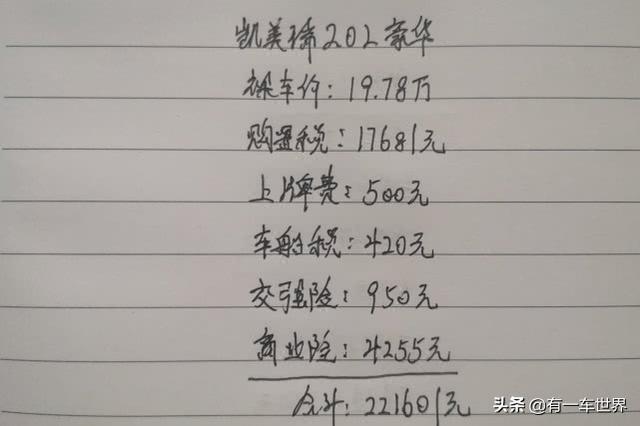 凯美瑞202豪华
裸车价：19.78万
购置税：17681元
上牌费：500元
车船税：420元
交强险：950元
商业险：4255元
合计：221601元
头条 @有一车世界